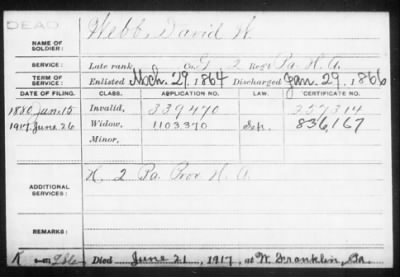 DEAD
NAME OF SOLDIER: Webb, David W.
SERVICE: Late rank, Co. G, 2 Reg't Pa. H. A.
TERM OF SERVICE: Enlisted Mch. 29, 1864 Discharged Jan. 29, 1866
DATE OF FILING. CLASS. APPLICATION NO. LAW. CERTIFICATE NO.
1880 Jan. 15 Invalid, 339470 257314
1917 June 26 Widow, 1103370 836,167
Minor,
ADDITIONAL SERVICES: K. 2 Pa. Prov. H. A.
REMARKS:
Died June 21, 1917, at W. Franklin, Pa.